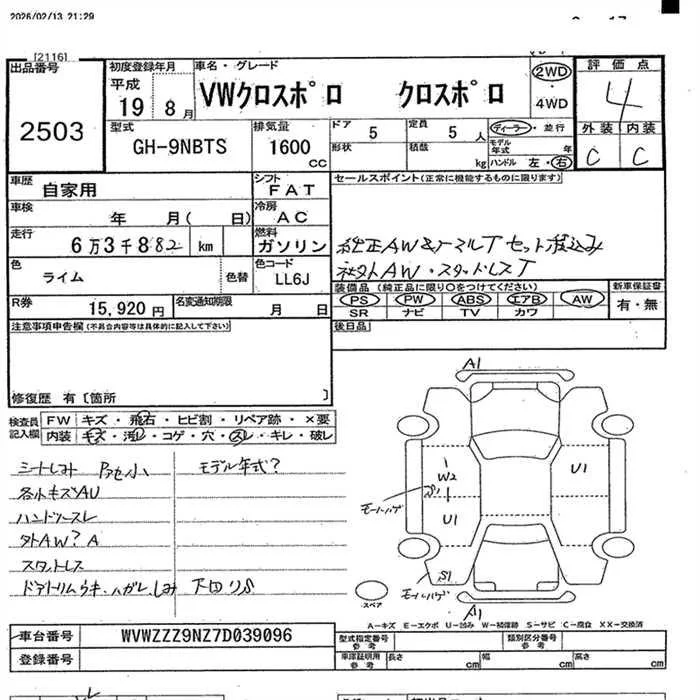 2026/02/13 21:29
[2116]
出品番号 初度登録年月 車名・グレード 評価点
2503 平成 19 8月 VWクロスポロ クロスポロ 2WD・4WD 4
型式 排気量 ドア 5 定員 5人 ディーラー・並行 外装 内装
GH-9NBTS 1600 CC 形状 積載 kg モデル年式 年 ハンドル 左・右 C C
車歴 自家用 シフト FAT セールスポイント(正常に機能するものに限ります)
車検 年 月( 日) 冷房 AC
走行 6万3千882 km 燃料 ガソリン 純正AW&ノーマルTセット積込み
色 ライム 色替 色コード LL6J 社外AW・スタッドレスT
装備品(純正品に限り○をつけてください) 新車保証書
R券 15,920円 名変通知期限 月 日 PS PW ABS エアB AW 有・無
SR ナビ TV カワ
注意事項申告欄(不具合内容等は具体的に記入して下さい) 後日品
修復歴 有〔箇所 〕
検査員記入欄 FW キズ・飛石・ヒビ割・リペア跡・×要
内装 キズ・汚レ・コゲ・穴・スレ・キレ・破レ
シートしみ 内色小 モデル年式?
各小キズAU
ハンドルスレ
外AW? A
スタットレス
ドアトリムウキ・ハガレ・しみ 下回りS
A1
W2
S1
モールハゲ
U1
U1
S1
モールハゲ
A1
スペア
A－キズ E－エクボ U－凹み W－補修跡 S－サビ C－腐食 XX－交換済
車台番号 WVWZZZ9NZ7D039096 型式指定番号 参考 類別区分番号 参考
登録番号 車庫証明用 参考 長さ cm 幅 cm 高さ cm